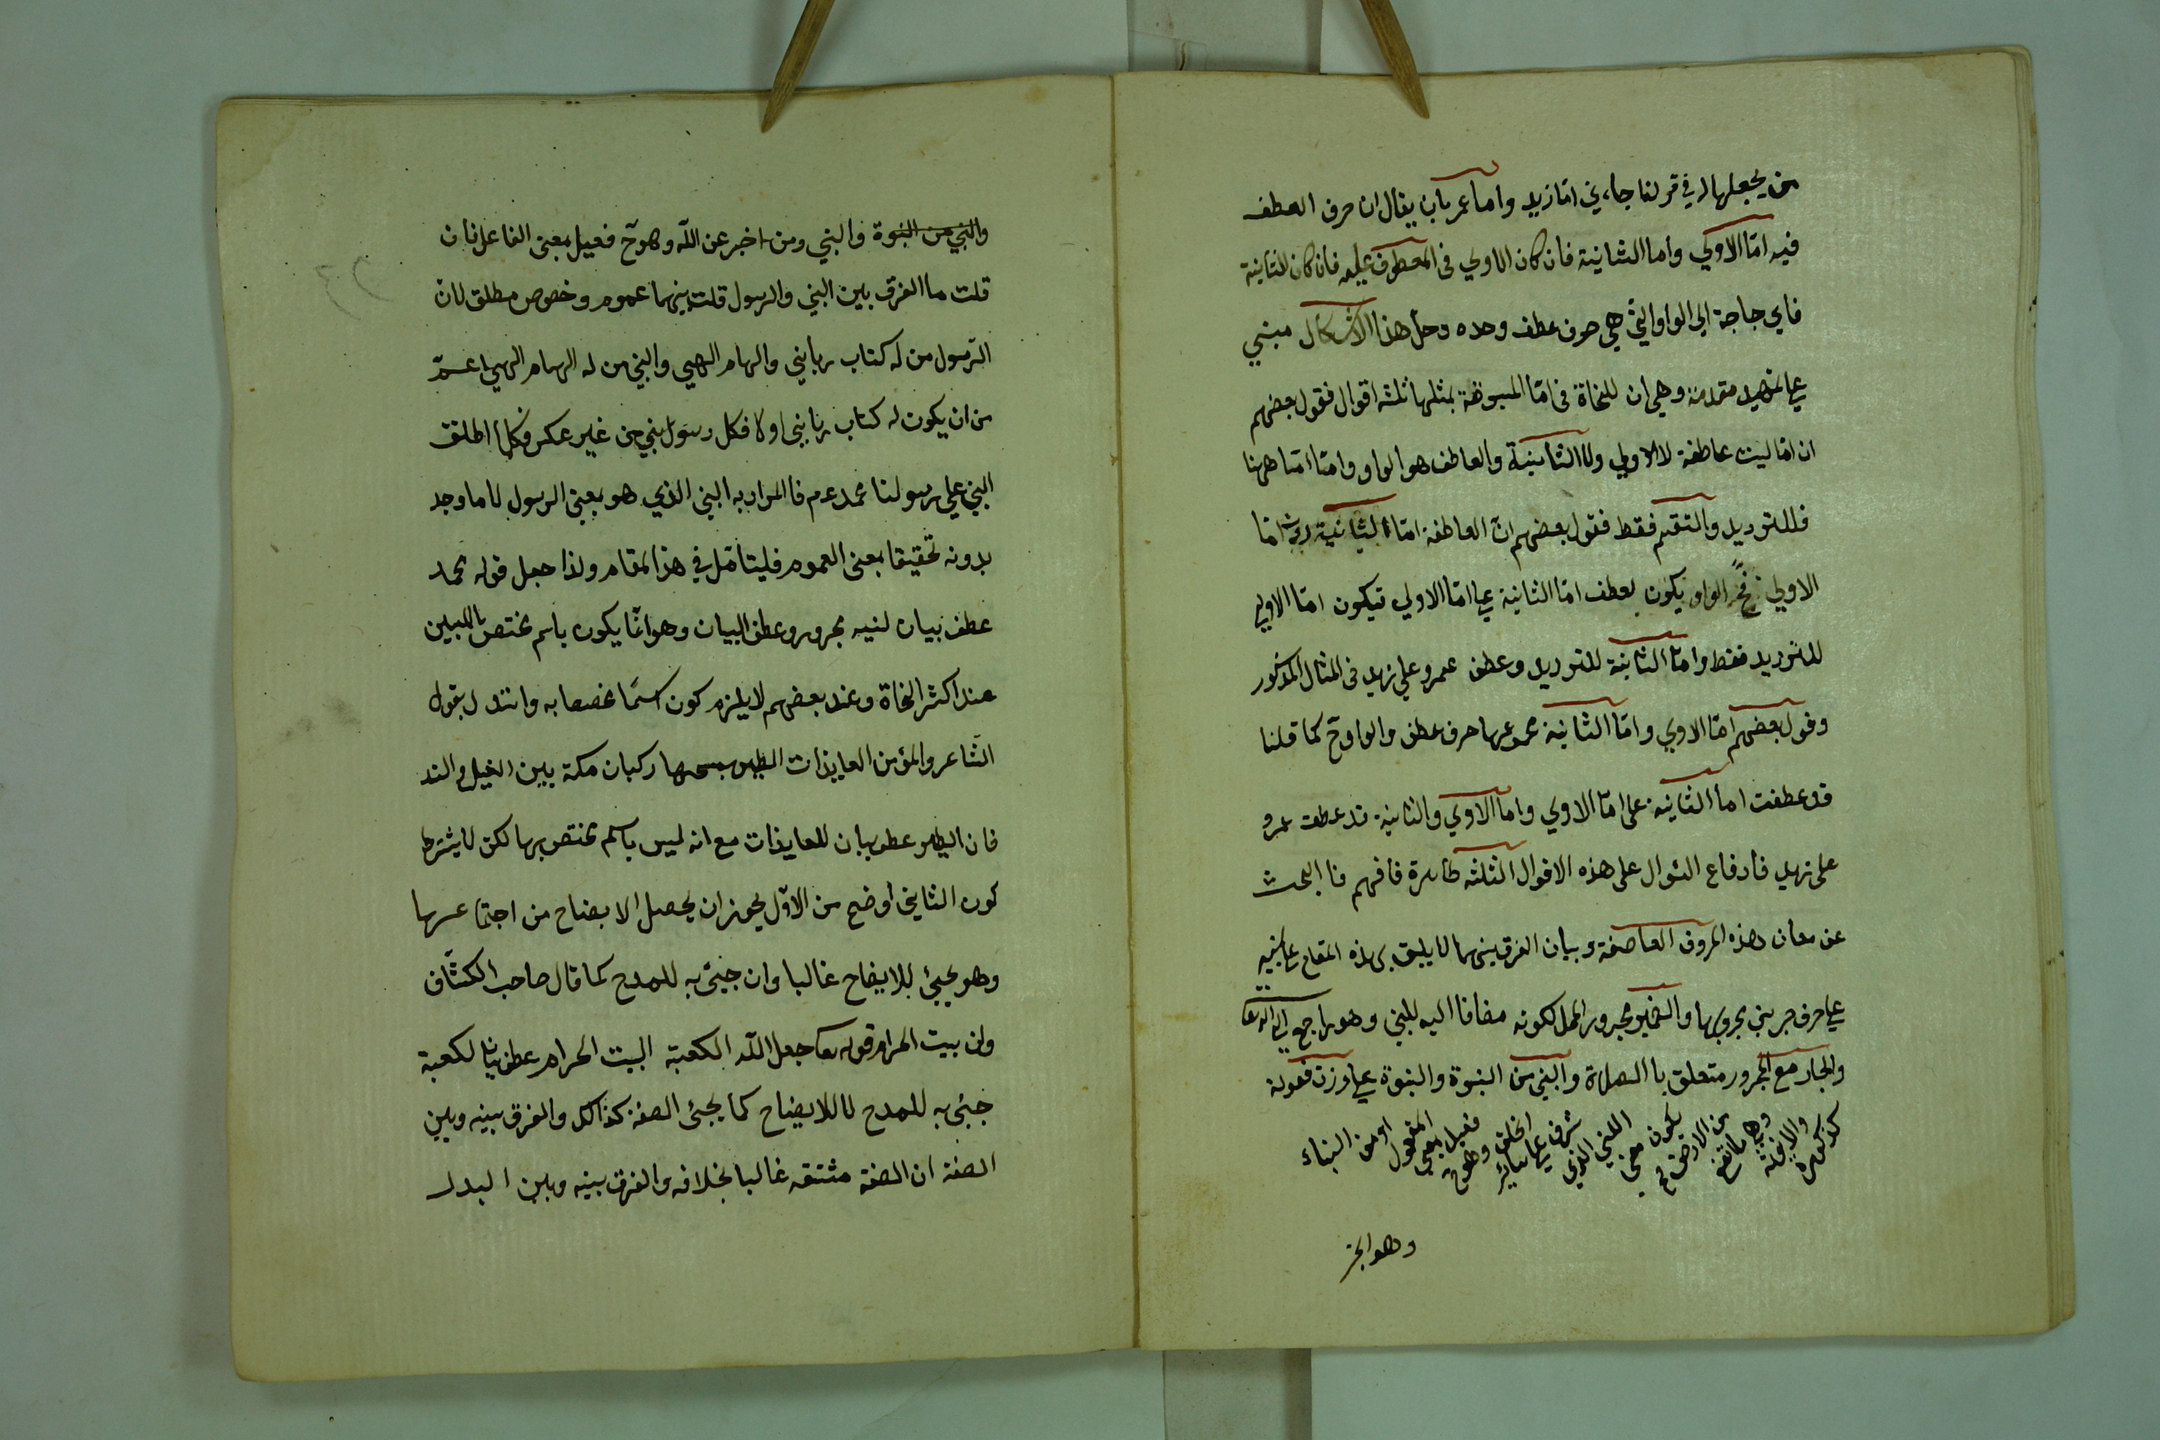 من يجعلها في قولنا جاءني امّا زيد واما عمر بان يقال ان حرف العطف
فيه امّا الاولي واما الثانية فان كان الاولي فى المعطوف عليه فان كان للثانية
فاي حاجة الي الواو التي هي حرف عطف وحده وحلّ هذا الاشكال مبني
علي تمهيد مقدمة وهي ان للنحاة فى امّا المسبوقة بمثلها ثلثه اقوال فقول بعضهم
ان امّا ليت عاطفة لا الاولي ولا الثانية والعاطف هو الواو وامّا امّا ههنا
فللترديد والتقسم فقط فقول بعضهم انّ العاطفة امّا الثانية دون امّا
الاولي فح الواو يكون لعطف امّا الثانية علي امّا الاولي فيكون امّا الاولي
للترديد فقط وامّا الثانية للترديد وعطف عمرو علي زيد فى المثال المذكور
وقول بعضهم امّا الاولي وامّا الثانية مجموعها حرف عطف والواو ح كما قلنا
قد عطفت اما الثانية على امّا الاولي واما الاولي والثانية قد عطفت عمرو
على زيد فاندفاع السؤال على هذه الاقوال الثلثه ظاهرة فافهم فا البحث
عن معان هذه الحروف العاصفة وبيان الفرق بينهما لا يليق بهذه المقام علي نبيه
علي حرف جر نبي مجرور بها والضمير مجرور المحل لكونه مضافا اليه للنبي وهو راجع الي الله تعا
والجار مع المجرور متعلق با الصلاة والنبي من النبوة والنبوة علي وزن فعولة
كذكورة والافلة وها ما اتفع من الارض ح يكون معنى النبي الذي شرف علي سائر الخلق وهو ح فعيل بمعني المفعول او من النباء
وهو الخبر
والنبي من النبوة والنبي ومن اخبر عن اللّه وهو ح فعيل بمعنى الفاعل فان
قلت ما الفرق بين النبي والرسول قلت بينهما عموم وخصوص مطلق لانّ
الرّسول من له كتاب ربابني والهام الهيي والنبي من له الهام الهيي اعمّ
من ان يكون له كتاب ربابني اولا فكل رسول نبي من غير عكس وكلما اطلق
النبي علي رسولنا محمد عم فا المراد به النبي الذي هو بمعني الرسول لا ما وجد
بدونه تحقيقا بمعنى العموم فليتأمّل في هذا المقام ولذا جعل قوله محمد
عطف بيان لنبيه مجرور وعطف البيان وهو انّما يكون باسم مختص بالمبين
عند اكثر النحاة وعند بعضهم لا يلزم كون اسمًا مخصصا به واستدل بقول
الشّاعر والمؤمن العايذات الطير يمسحها ركبان مكة بين الغيل والسند
فان الطير عطف بيان للعايذات مع انه ليس باسم مختص بها لكن لا يشترط
كون الثاني أوضح من الاوّل يجوز ان يحصل الايضاح من اجتماعها
وهو يجيئ للايضاح غالبا وان جيئ به للمدح كما قال صاحب الكشّاف
وان بيت الحرام قوله تعا جعل اللّه الكعبة البيت الحرام عطف بيان لكعبة
جيئ به للمدح لا للايضاح كما يجيئ الصفة كذالك والفرق بينه وبين
الصفة ان الصفة مشتقه غالبا بخلافه والفرق بينه وبين البدل